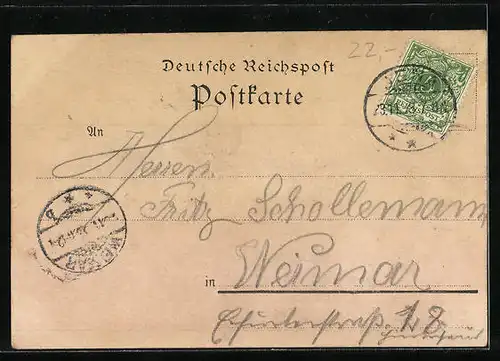 22,-
Deutsche Reichspost
Postkarte
An
Herren
Fritz Schollemann
in Weimar
Erfurterstraße 18